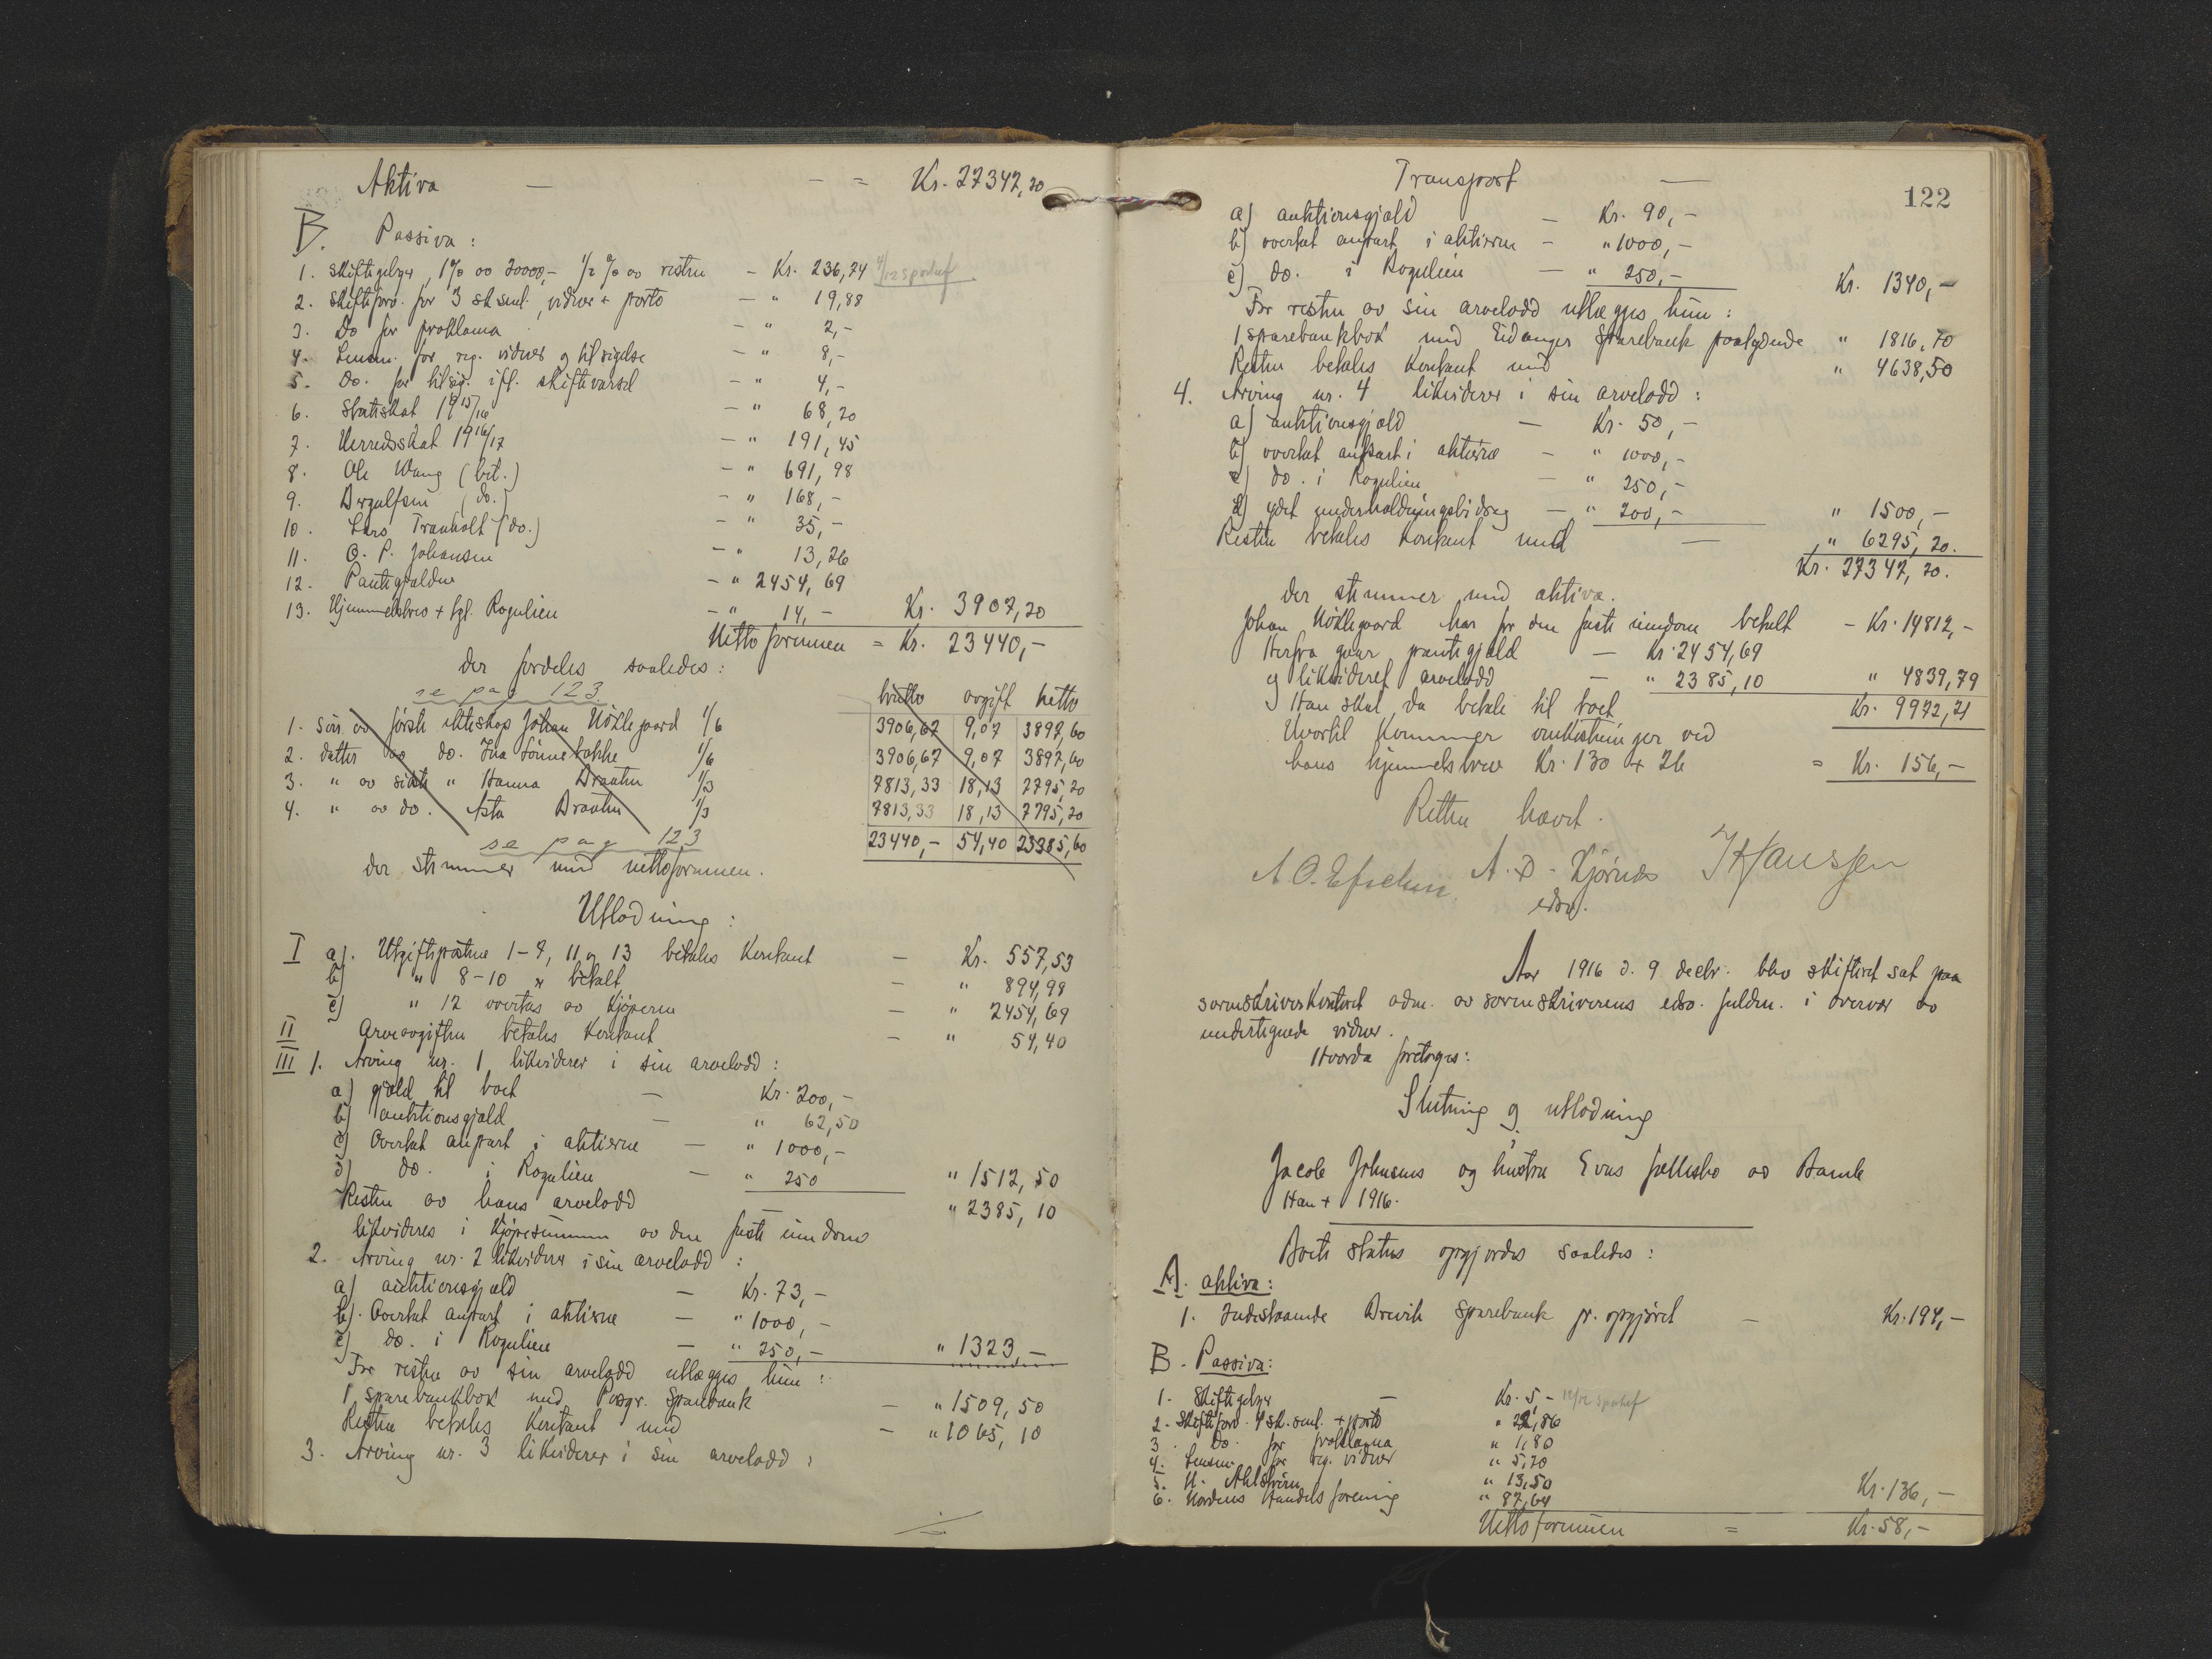 Aktiva — - = Kr. 27347,20
B. Passiva:
1. Skiftegebyr, 1% av 20000,- ½ % av resten - Kr. 236,74
2. Skifteforv. for 3 sk.saml., vidner + porto - " 19,88
3. Do for proklama - " 2,-
4. Lensm. for reg. vidner og tilsigelse - " 8,-
5. do. for tilsig. ifl. skiftevarsel - " 4,-
6. Statsskat 1915/16 - " 68,20
7. Herredsskat 1916/17 - " 191,45
8. Ole Wang (bet.) - " 691,98
9. Bergulfsen (do.) - " 168,-
10. Lars Tranholt (do.) - " 35,-
11. O. P. Johansen - " 13,26
12. Pantegjælden - " 2454,69
13. Hjemmelsbrev + tgl. Rognlien - " 14,- Kr. 3907,20
Netto formuen = Kr. 23440,-
der fordeles saaledes:
se pag 123
brutto avgift netto
1. Søn av første ekteskap Johan Nøklegaard 1/6 3906,67 9,07 3897,60
2. datter av do. Ina Sønnebakke 1/6 3906,67 9,07 3897,60
3. " av siste " Hanna Braaten 1/3 7813,33 18,13 7795,20
4. " av do. Asta Braaten 1/3 7813,33 18,13 7795,20
23440,- 54,40 23385,60
se pag 123
der stemmer med nettoformuen.
Utlodning:
I a). Utgiftspostene 1-7, 11 og 13 betales kontant - Kr. 557,53
b) " 8-10 er betalt - " 894,98
c) " 12 overtas av kjøperen - " 2454,69
II Arveavgiften betales kontant - " 54,40
III 1. Arving nr. 1 likviderer i sin arvelodd:
a) gjæld til boet — Kr. 200,-
b) auktionsgjæld — " 62,50
c) Overtat anpart i aktierne — " 1000,-
d) do. i Rognlien — " 250 " 1512,50
Resten av hans arvelodd — " 2385,10
likvideres i kjøpesummen av den faste eiendom
2. Arving nr. 2 likviderer i sin arvelodd:
a) auktionsgjæld — Kr. 73,-
b). Overtat anpart i aktierne — " 1000,-
c) do. i Rognlien — " 250,- " 1323,-
For resten av sin arvelodd utlægges hun:
1 sparebankbok med Porsgr. Sparebank - " 1509,50
Resten betales kontant med - " 1065,10
3. Arving nr. 3 likviderer i sin arvelodd:
Transport —
122
a) auktionsgjæld — Kr. 90,-
b) overtat anpart i aktierne - " 1000,-
c) do. i Rognlien — " 250,- Kr. 1340,-
For resten av sin arvelodd utlægges hun:
1 sparebankbok med Eidanger Sparebank paalydende " 1816,70
Resten betales kontant med " 4638,50
4. Arving nr. 4 likviderer i sin arvelodd:
a) auktionsgjæld — Kr. 50,-
b) overtat anpart i aktierne - " 1000,-
c) do. i Rognlien - " 250,-
d) ydet underholdningsbidrag - " 200,- " 1500,-
Resten betales kontant med — " 6295,20.
Kr. 27347,20.
der stemmer med aktiva.
Johan Nøklegaard har for den faste eiendom betalt - Kr. 14812,-
Herfra gaar pantegjæld — Kr. 2454,69
og likvideret arvelodd — " 2385,10 " 4839,79
Han skal da betale til boet Kr. 9972,21
Hvortil kommer omkostninger ved
hans hjemmelsbrev Kr. 130 + 26 = Kr. 156,-
Retten hævet.
A. D. Kjørnes
edsv.
J Hanssen
Aar 1916 d. 9 decbr. blev skifteret sat paa
sorenskriverkontoret adm. av sorenskriverens edsv. fuldm. i overvær av
undertegnede vidner.
Hvorda foretoges:
Slutning og utlodning
i
Jacob Johnsens og hustru Evas fællesbo av Bamle
Han + 1916.
Boets status opgjordes saaledes:
A. aktiva:
1. Indestaaende Brevik Sparebank pr. opgjøret — Kr. 194,-
B. Passiva:
1. Skiftegebyr — Kr. 5,-
2. Skifteforv. 4 sk.saml. + porto " 22,86
3. Do. for proklama " 1,80
4. Lensm. for reg. vidner " 5,20
5. H. Ahlstrøm " 13,50
6. Nordens Handelsforening " 87,64 Kr. 136,-
Netto formuen = Kr. 58,-